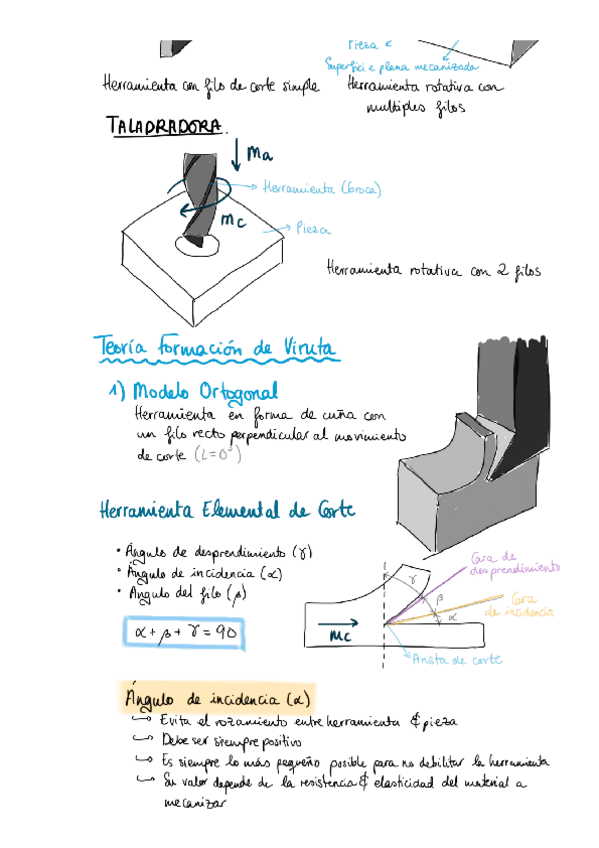 Pieza
Superficie plana mecanizada
Herramienta con filo de corte simple
Herramienta rotativa con
multiples filos
TALADRADORA.
Ma
Herramienta (broca)
Mc
Pieza
Herramienta rotativa con 2 filos
Teoría Formación de Viruta
1) Modelo Ortogonal
Herramienta en forma de cuña con
un filo recto perpendicular al movimiento
de corte (L=0°)
Herramienta Elemental de Corte
• Ángulo de desprendimiento (γ)
• Ángulo de incidencia (α)
• Angulo del filo (β)
α+β+γ=90
Cara de
desprendimiento
Cara
de incidencia
γ
β
α
Mc
Arista de corte
Ángulo de incidencia (α)
↪ Evita el rozamiento entre herramienta & pieza
↪ Debe ser siempre positivo
↪ Es siempre lo más pequeño posible para no debilitar la herramienta
↪ Su valor depende de la resistencia & elasticidad del material a
mecanizar